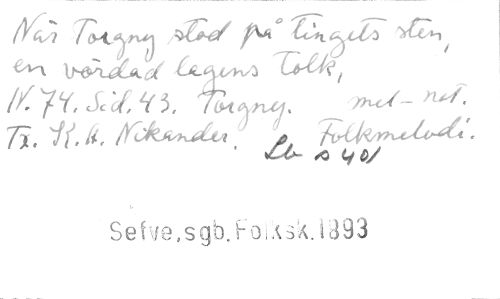 När Torgny stod på tingets sten,
en vördad lagens tolk,
N. 74. Sid. 43. Torgny. mel-not.
Tx. K. A. Nikander. Folkmelodi.
Lb s 401
Sefve, sgb. Folksk. 1893